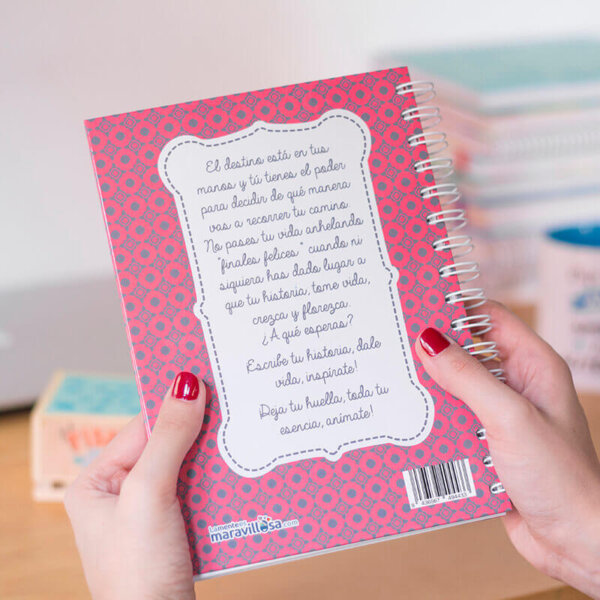 El destino está en tus
manos y tú tienes el poder
para decidir de qué manera
vas a recorrer tu camino.
No pases tu vida anhelando
"finales felices" cuando ni
siquiera has dado lugar a
que tu historia, tome vida,
crezca y florezca.
¿A qué esperas?
¡Escribe tu historia, dale
vida, inspírate!
¡Deja tu huella, toda tu
esencia, anímate!
Lamentees
maravillosa.com